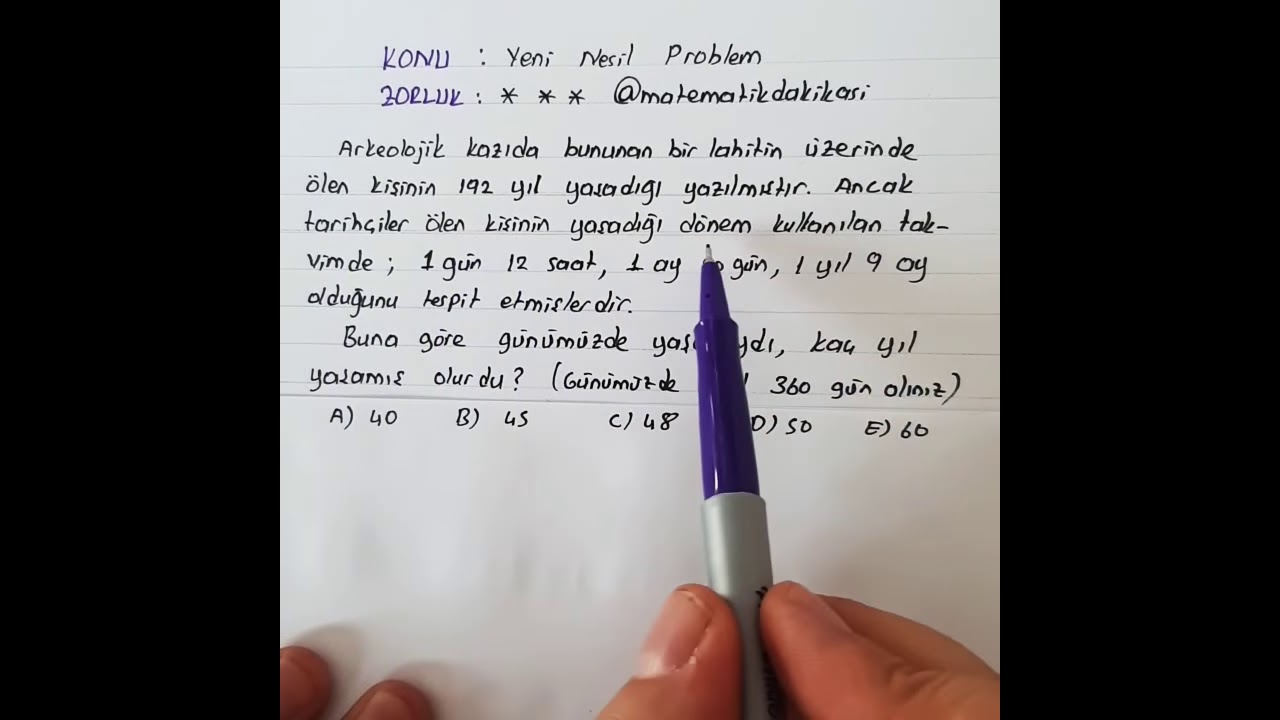 KONU : Yeni Nesil Problem
ZORLUK : * * * @matematikdakikasi
Arkeolojik kazıda bununan bir lahitin üzerinde
ölen kişinin 192 yıl yaşadığı yazılmıştır. Ancak
tarihçiler ölen kişinin yaşadığı dönem kullanılan tak-
vimde ; 1 gün 12 saat, 1 ay gün, 1 yıl 9 ay
olduğunu tespit etmişlerdir.
Buna göre günümüzde kaç yıl
yaşamış olurdu? (Günümüzde 360 gün alınız)
A) 40 B) 45 C) 48 D) 50 E) 60